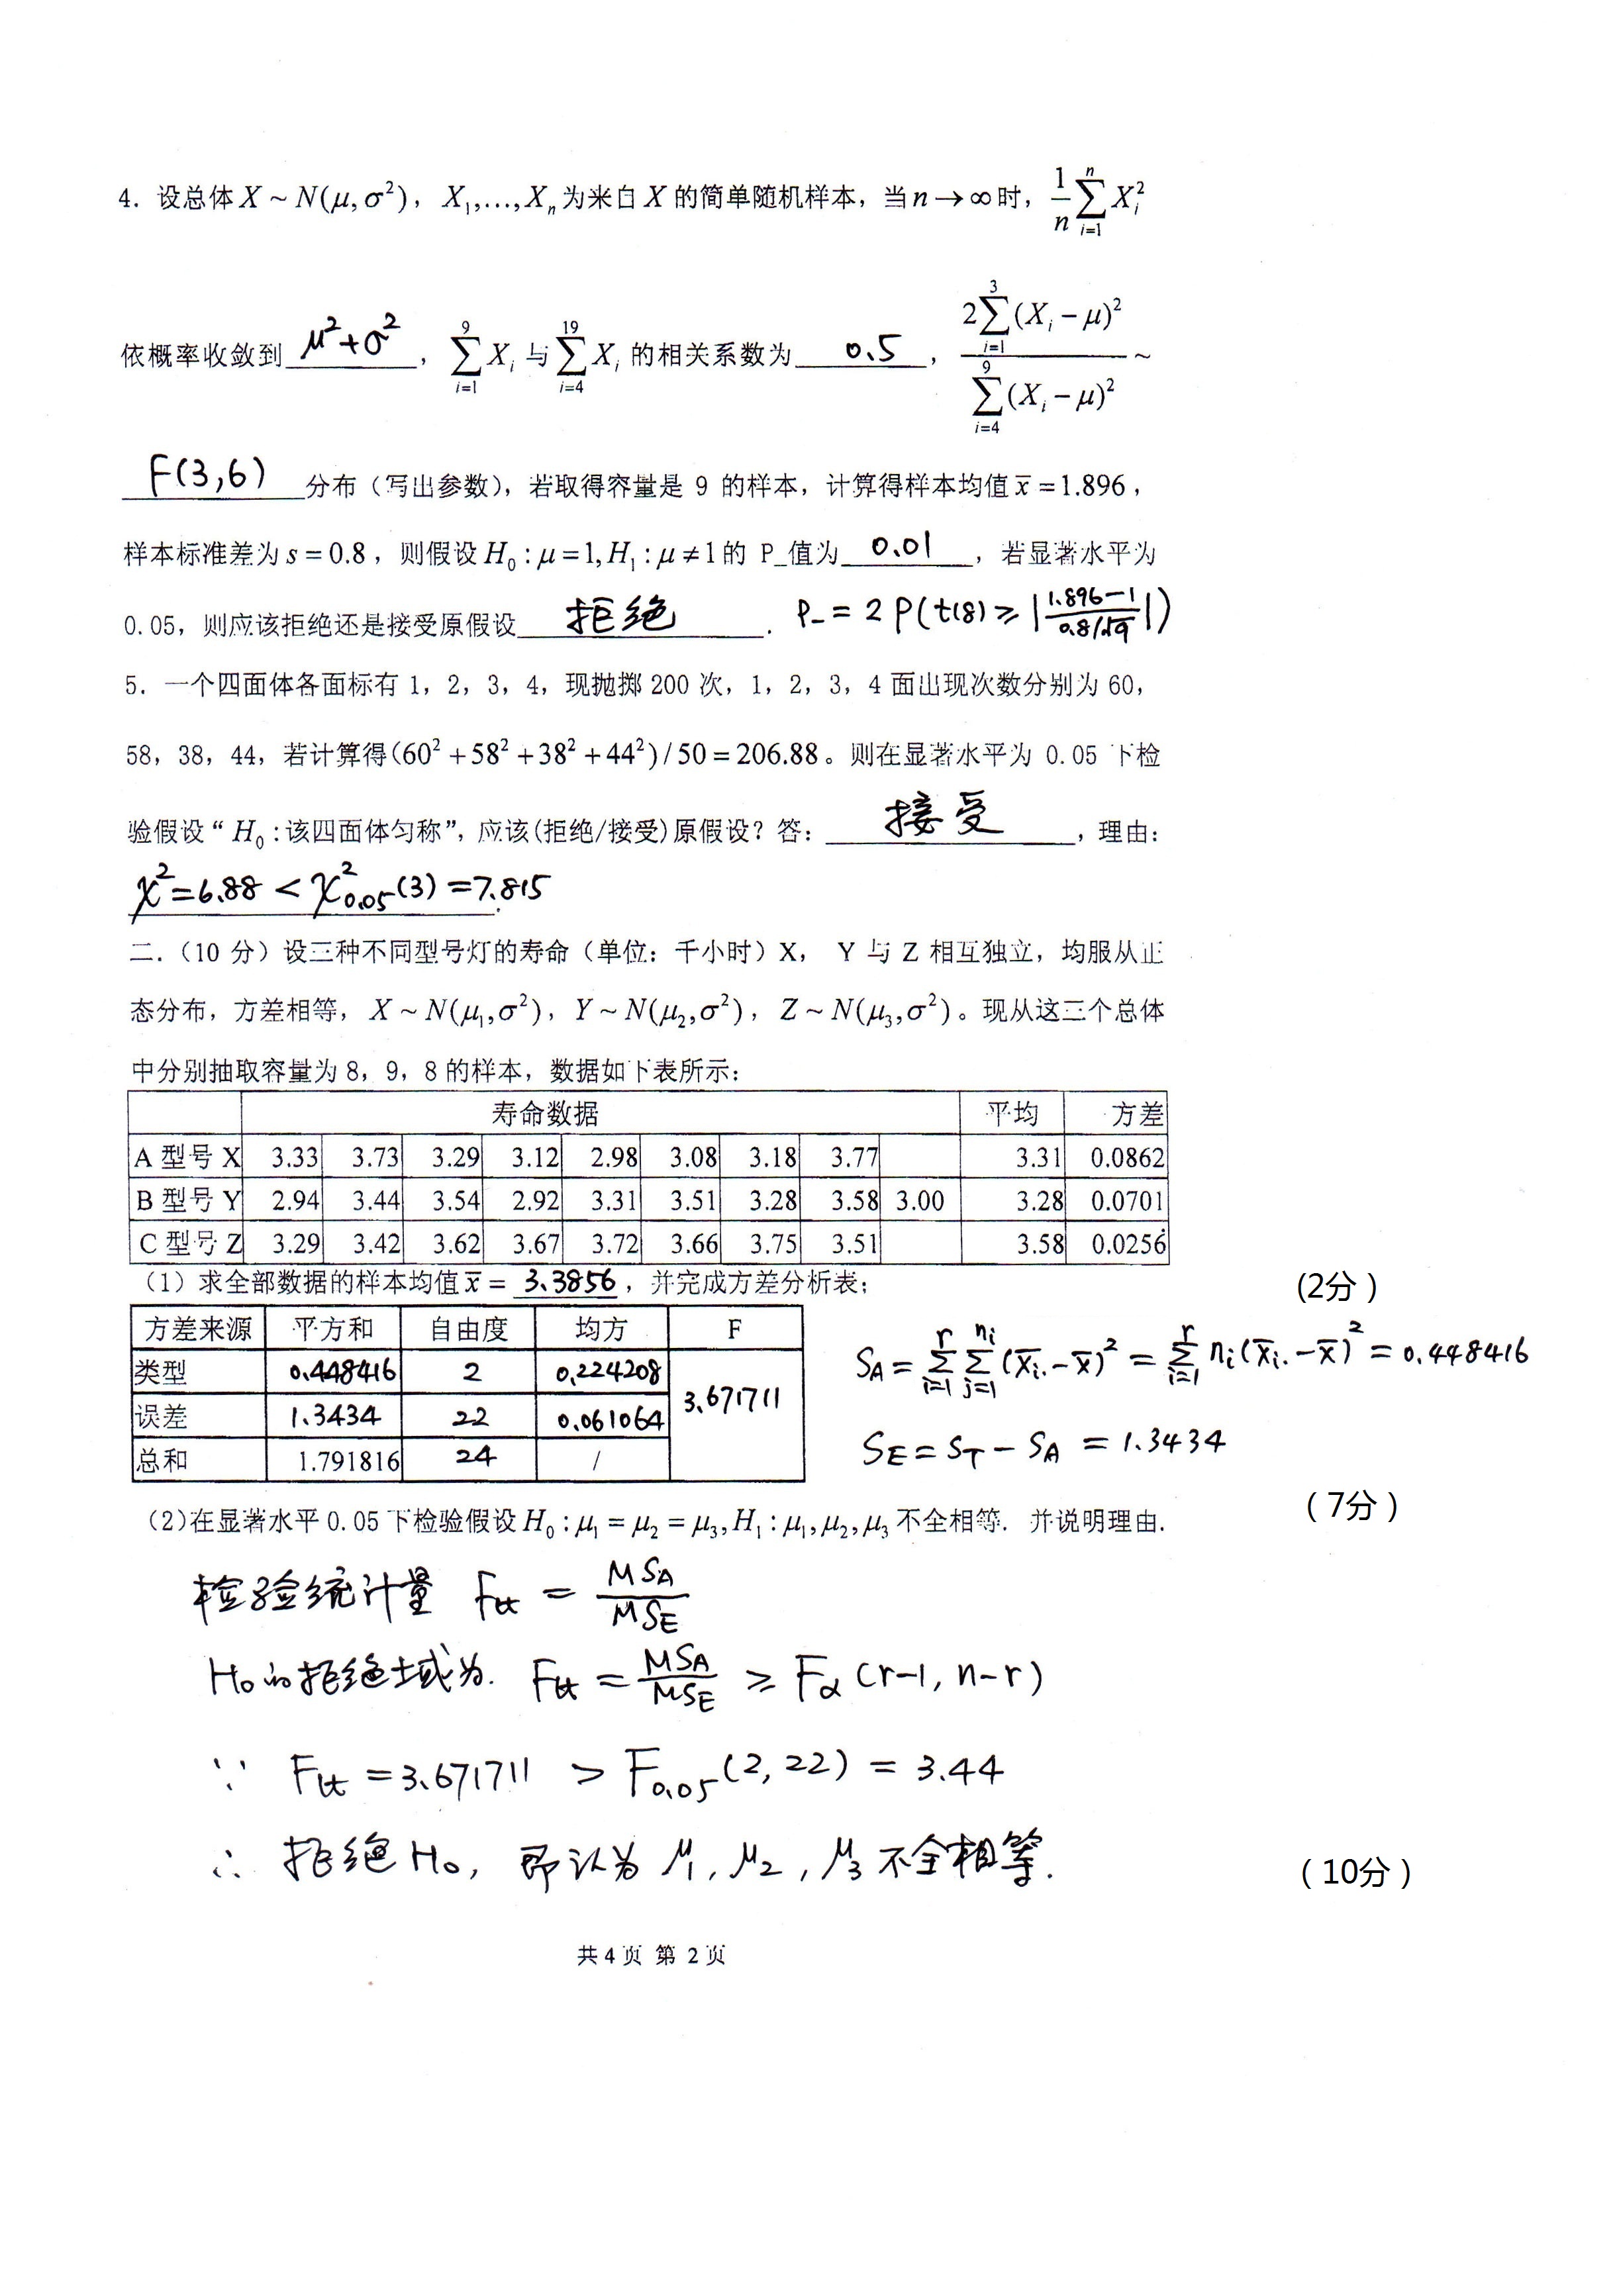 4. 设总体 X ~ N(μ, σ²), X₁,...,Xₙ为来自 X 的简单随机样本，当 n → ∞ 时，1/n ∑_{i=1}^{n} X_i²
依概率收敛到 μ²+σ² ，∑_{i=1}^{9} X_i 与 ∑_{i=4}^{19} X_i 的相关系数为 0.5 ，2∑_{i=1}^{3}(X_i − μ)² / ∑_{i=4}^{9}(X_i − μ)² ~
F(3,6) 分布（写出参数），若取得容量是 9 的样本，计算得样本均值 x̄ = 1.896，
样本标准差为 s = 0.8，则假设 H₀ : μ = 1, H₁ : μ ≠ 1 的 P_值为 0.01 ，若显著水平为
0.05，则应该拒绝还是接受原假设 拒绝 . P_ = 2P(t(8) ≥ |(1.896−1)/(0.8/√9)|)
5. 一个四面体各面标有 1，2，3，4，现抛掷 200 次，1，2，3，4 面出现次数分别为 60，
58，38，44，若计算得(60² + 58² + 38² + 44²) / 50 = 206.88。则在显著水平为 0.05 下检
验假设“ H₀ : 该四面体匀称”，应该(拒绝/接受)原假设？答： 接受 ，理由：
χ² = 6.88 < χ²₀.₀₅(3) = 7.815 .
二.（10 分）设三种不同型号灯的寿命（单位：千小时）X， Y 与 Z 相互独立，均服从正
态分布，方差相等， X ~ N(μ₁, σ²), Y ~ N(μ₂, σ²), Z ~ N(μ₃, σ²)。现从这三个总体
中分别抽取容量为 8，9，8 的样本，数据如下表所示：
寿命数据 平均 方差
A 型号 X 3.33 3.73 3.29 3.12 2.98 3.08 3.18 3.77 3.31 0.0862
B 型号 Y 2.94 3.44 3.54 2.92 3.31 3.51 3.28 3.58 3.00 3.28 0.0701
C 型号 Z 3.29 3.42 3.62 3.67 3.72 3.66 3.75 3.51 3.58 0.0256
（1）求全部数据的样本均值 x̄ = 3.3856 ，并完成方差分析表； (2分)
方差来源 平方和 自由度 均方 F
类型 0.448416 2 0.224208 3.671711
误差 1.3434 22 0.061064
总和 1.791816 24 /
S_A = ∑_{i=1}^{r} ∑_{j=1}^{n_i} (x̄_i. − x̄)² = ∑_{i=1}^{r} n_i(x̄_i. − x̄)² = 0.448416
S_E = S_T − S_A = 1.3434
(7分)
（2)在显著水平 0.05 下检验假设 H₀ : μ₁ = μ₂ = μ₃, H₁ : μ₁, μ₂, μ₃ 不全相等. 并说明理由.
检验统计量 F比 = MS_A / MS_E
H₀的拒绝域为. F比 = MS_A / MS_E ≥ F_α (r−1, n−r)
∵ F比 = 3.671711 > F₀.₀₅(2, 22) = 3.44
∴ 拒绝 H₀, 即认为 μ₁, μ₂, μ₃ 不全相等. (10分)
共 4 页 第 2 页